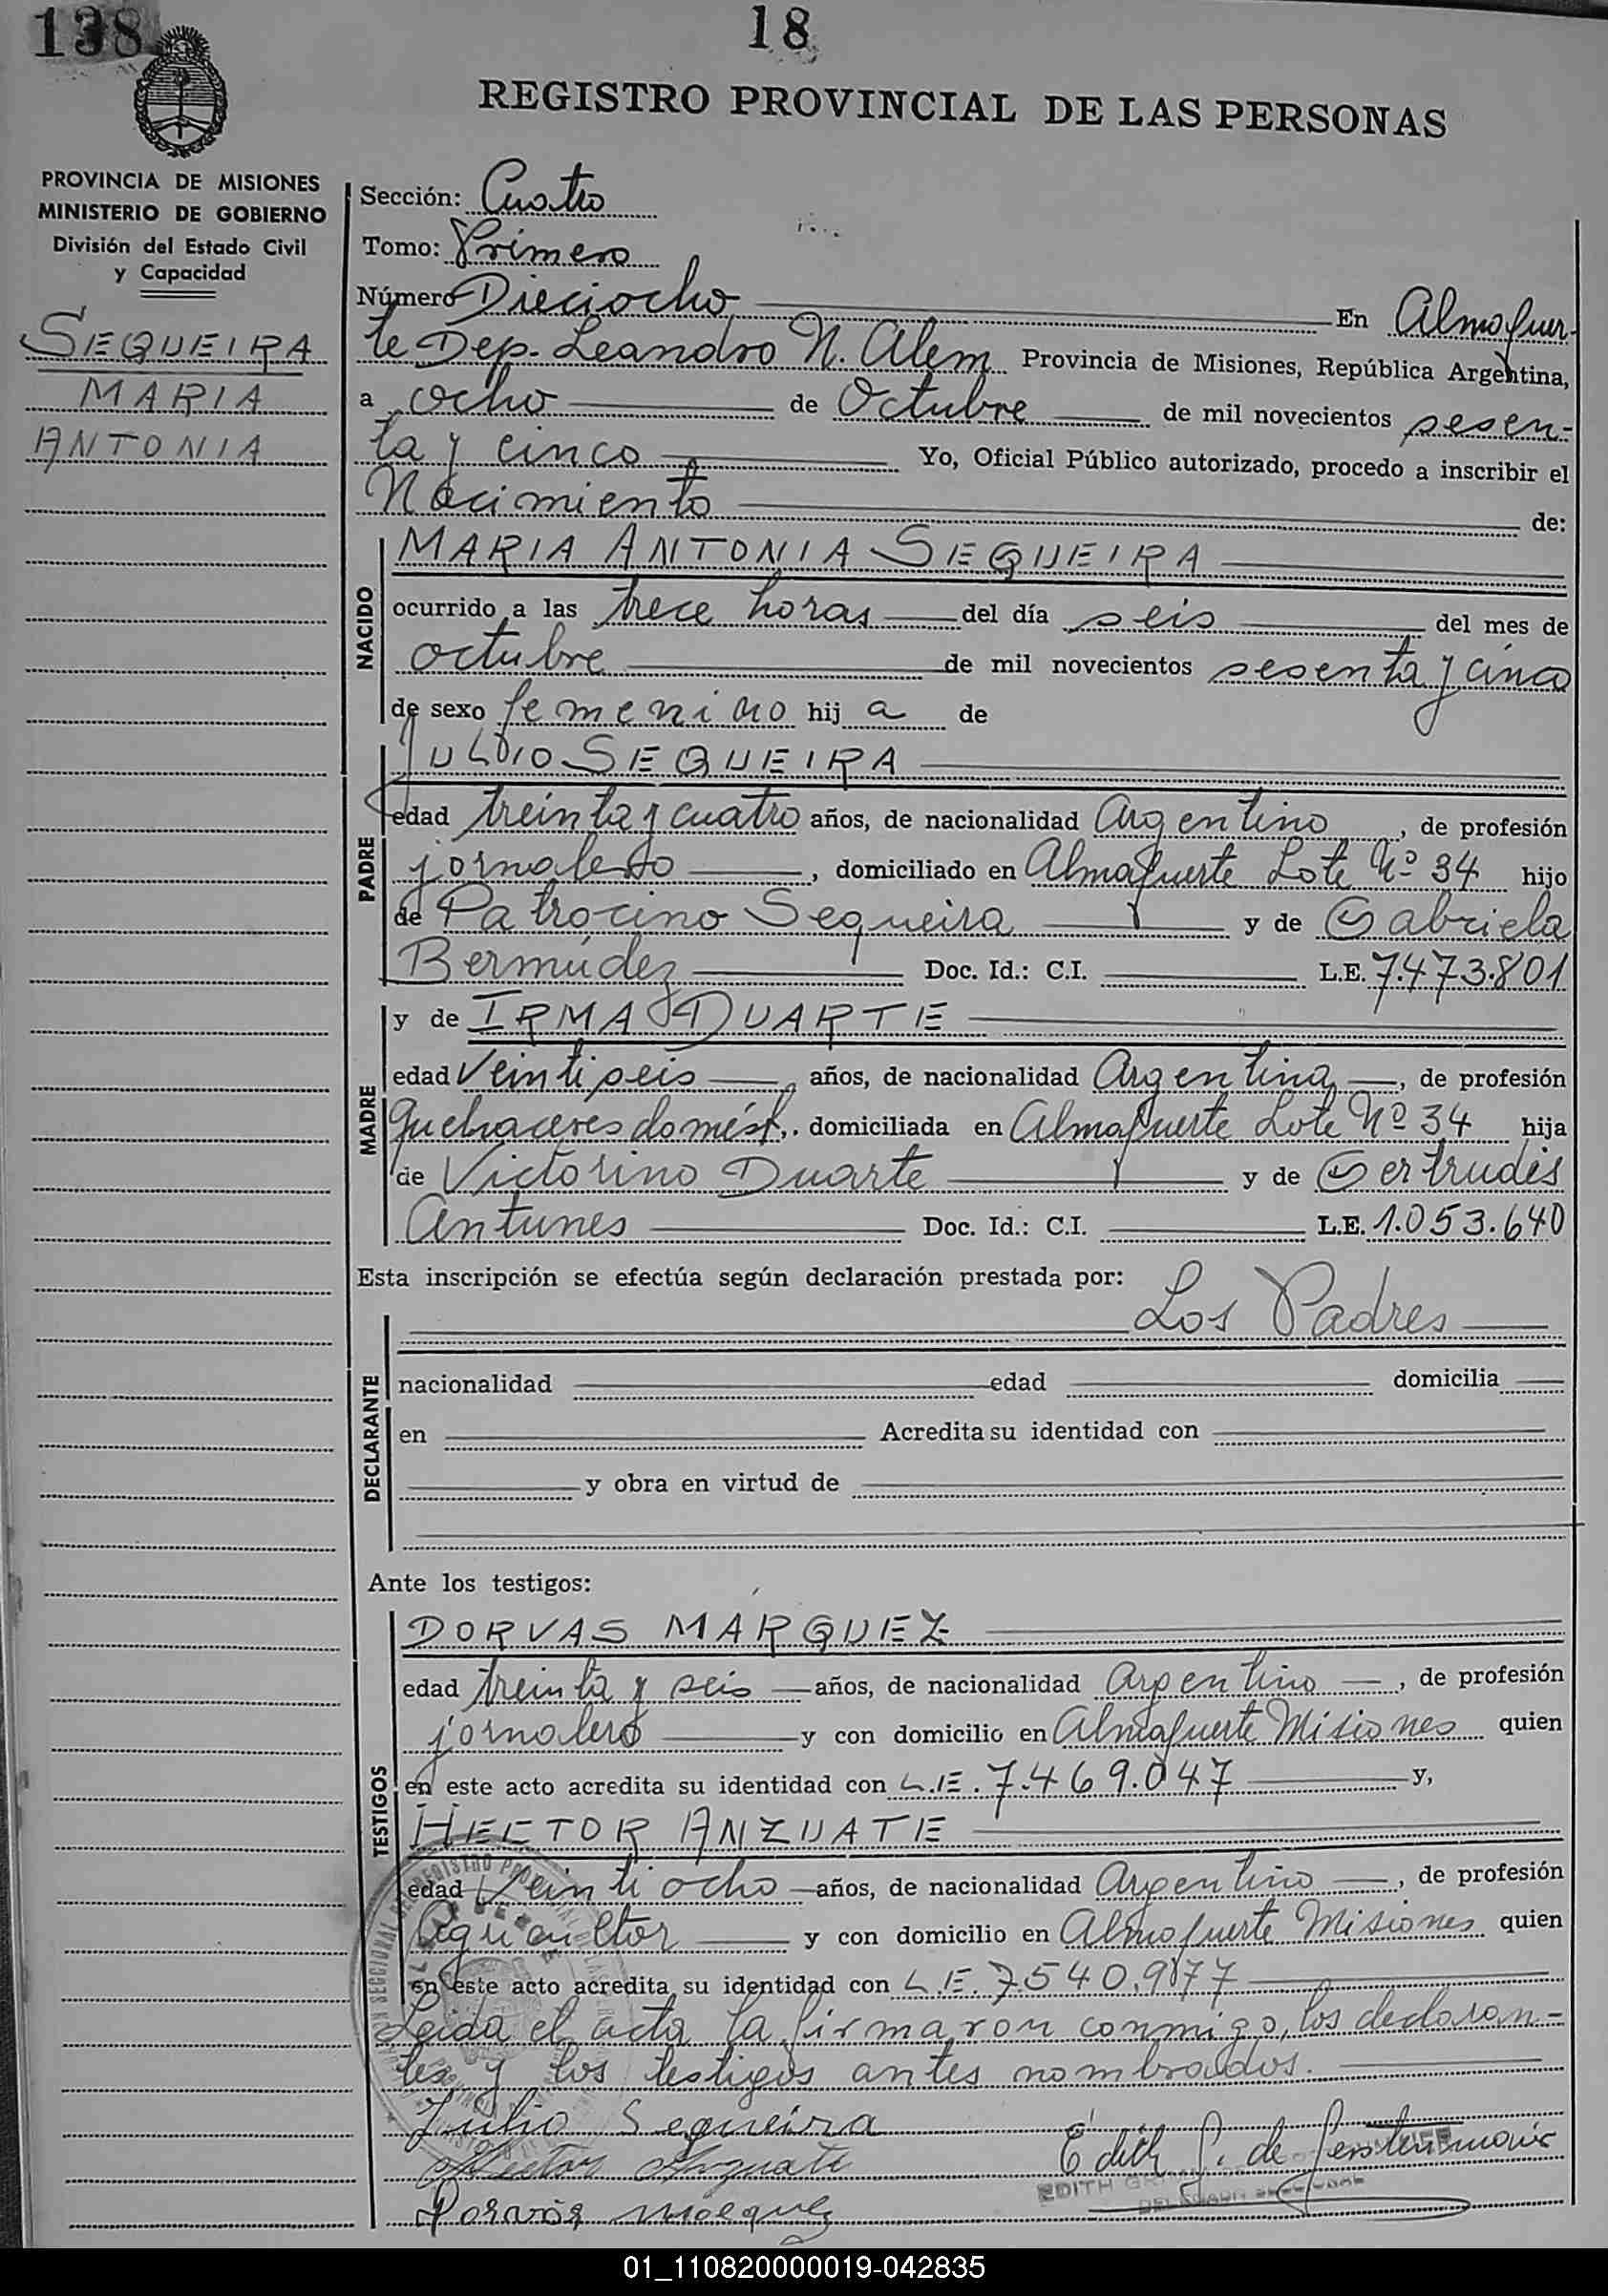 138
18
REGISTRO PROVINCIAL DE LAS PERSONAS
PROVINCIA DE MISIONES
MINISTERIO DE GOBIERNO
División del Estado Civil
y Capacidad
SEQUEIRA
MARIA
ANTONIA
Sección: Cuatro
Tomo: Primero
Número Dieciocho En Almafuer-
te Dep. Leandro N. Alem Provincia de Misiones, República Argentina,
a ocho de Octubre de mil novecientos sesen-
ta y cinco Yo, Oficial Público autorizado, procedo a inscribir el
Nacimiento de:
NACIDO
MARIA ANTONIA SEQUEIRA
ocurrido a las trece horas del día seis del mes de
octubre de mil novecientos sesenta y cinco
de sexo femenino hij a de
PADRE
JULIO SEQUEIRA
edad treinta y cuatro años, de nacionalidad Argentino, de profesión
jornalero, domiciliado en Almafuerte Lote Nº 34 hijo
de Patrocino Sequeira y de Gabriela
Bermúdez Doc. Id.: C.I. L.E. 7.473.801
MADRE
y de IRMA DUARTE
edad Veintiseis años, de nacionalidad Argentina, de profesión
Quehaceres domést., domiciliada en Almafuerte Lote Nº 34 hija
de Victorino Duarte y de Gertrudis
Antunes Doc. Id.: C.I. L.E. 1.053.640
Esta inscripción se efectúa según declaración prestada por:
Los Padres
DECLARANTE
nacionalidad edad domicilia
en Acredita su identidad con
y obra en virtud de
Ante los testigos:
TESTIGOS
DORVAS MÁRQUEZ
edad treinta y seis años, de nacionalidad Argentino, de profesión
jornalero y con domicilio en Almafuerte Misiones quien
en este acto acredita su identidad con L.E. 7.469.047 y,
HECTOR ANZUATE
edad Veintiocho años, de nacionalidad Argentino, de profesión
Agricultor y con domicilio en Almafuerte Misiones quien
en este acto acredita su identidad con L.E. 7.540.977
Leida el acta la firmaron conmigo, los declaran-
tes y los testigos antes nombrados.
Julio Sequeira
Edith G. de
EDITH
01_110820000019-042835